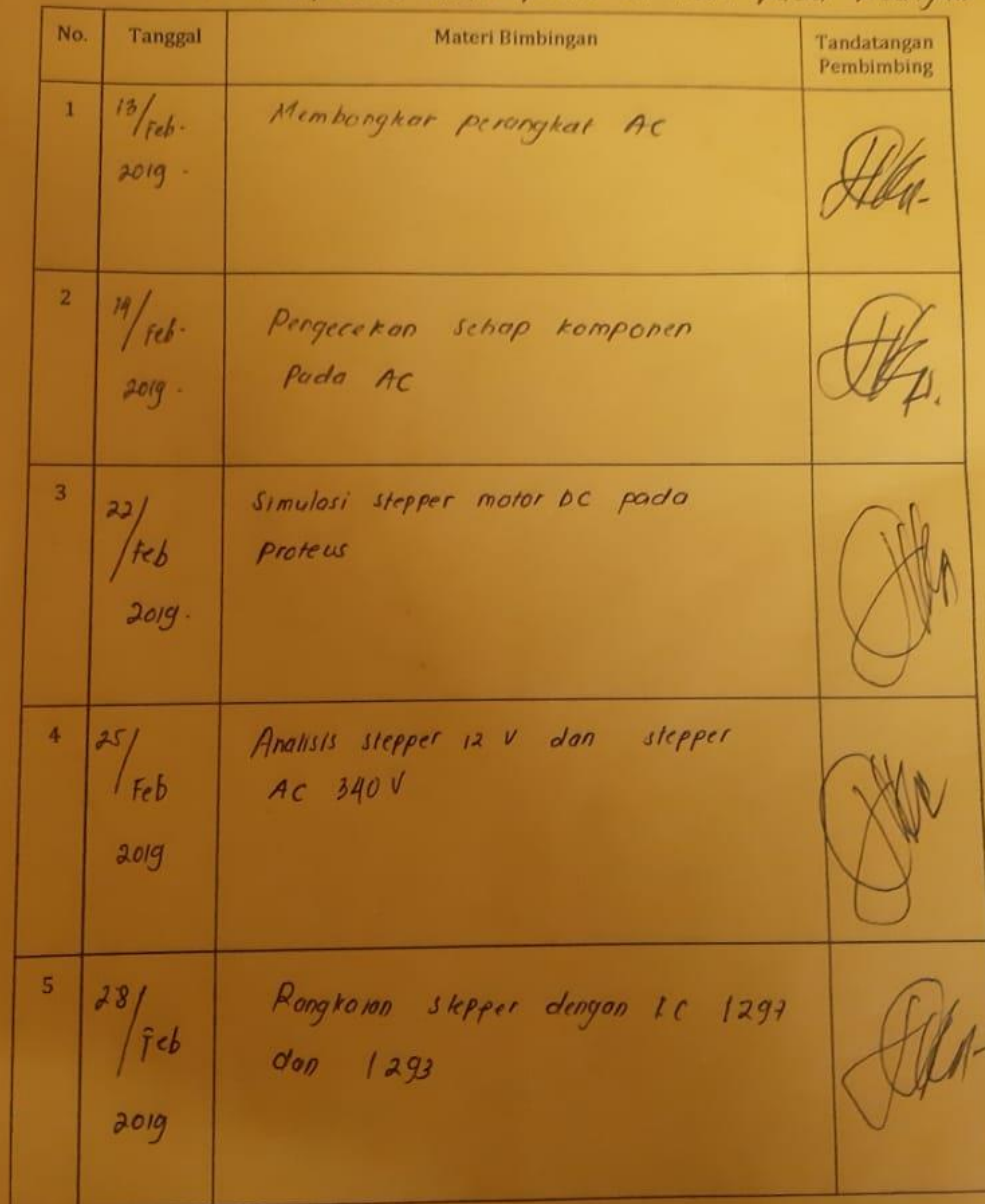 No. Tanggal Materi Bimbingan Tandatangan Pembimbing
1 13/Feb. 2019. Membongkar perangkat AC
2 19/Feb. 2019. Pengecekan setiap komponen
pada AC
3 22/Feb 2019. Simulasi stepper motor DC pada
Proteus
4 25/Feb 2019 Analisis stepper 12 V dan stepper
AC 340 V
5 28/Feb 2019 Rangkaian stepper dengan IC l297
dan l293